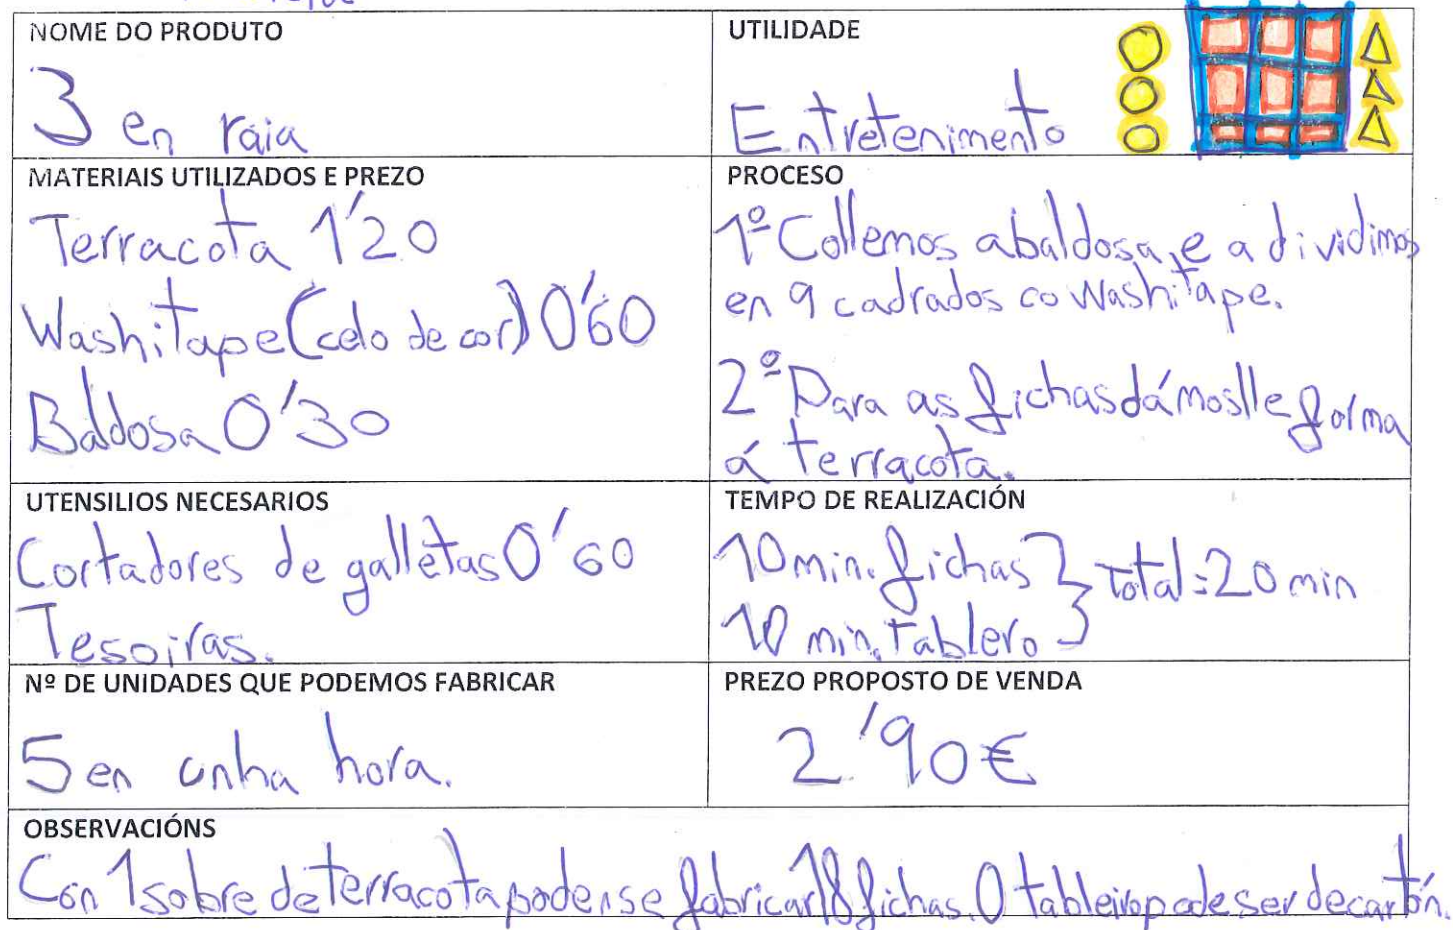 NOME DO PRODUTO
3 en raia
UTILIDADE
Entretenimento
MATERIAIS UTILIZADOS E PREZO
Terracota 1'20
Washitape (celo de cor) 0'60
Baldosa 0'30
PROCESO
1º Collemos a baldosa, e a dividimos
en 9 cadrados co Washitape.
2º Para as fichas dámoslle forma
á terracota.
UTENSILIOS NECESARIOS
Cortadores de galletas 0'60
Tesoiras.
TEMPO DE REALIZACIÓN
10 min. fichas } total = 20 min
10 min. Tablero
Nº DE UNIDADES QUE PODEMOS FABRICAR
5 en unha hora.
PREZO PROPOSTO DE VENDA
2'90€
OBSERVACIÓNS
Con 1 sobre de terracota podense fabricar 18 fichas. O tableiro pode ser de cartón.